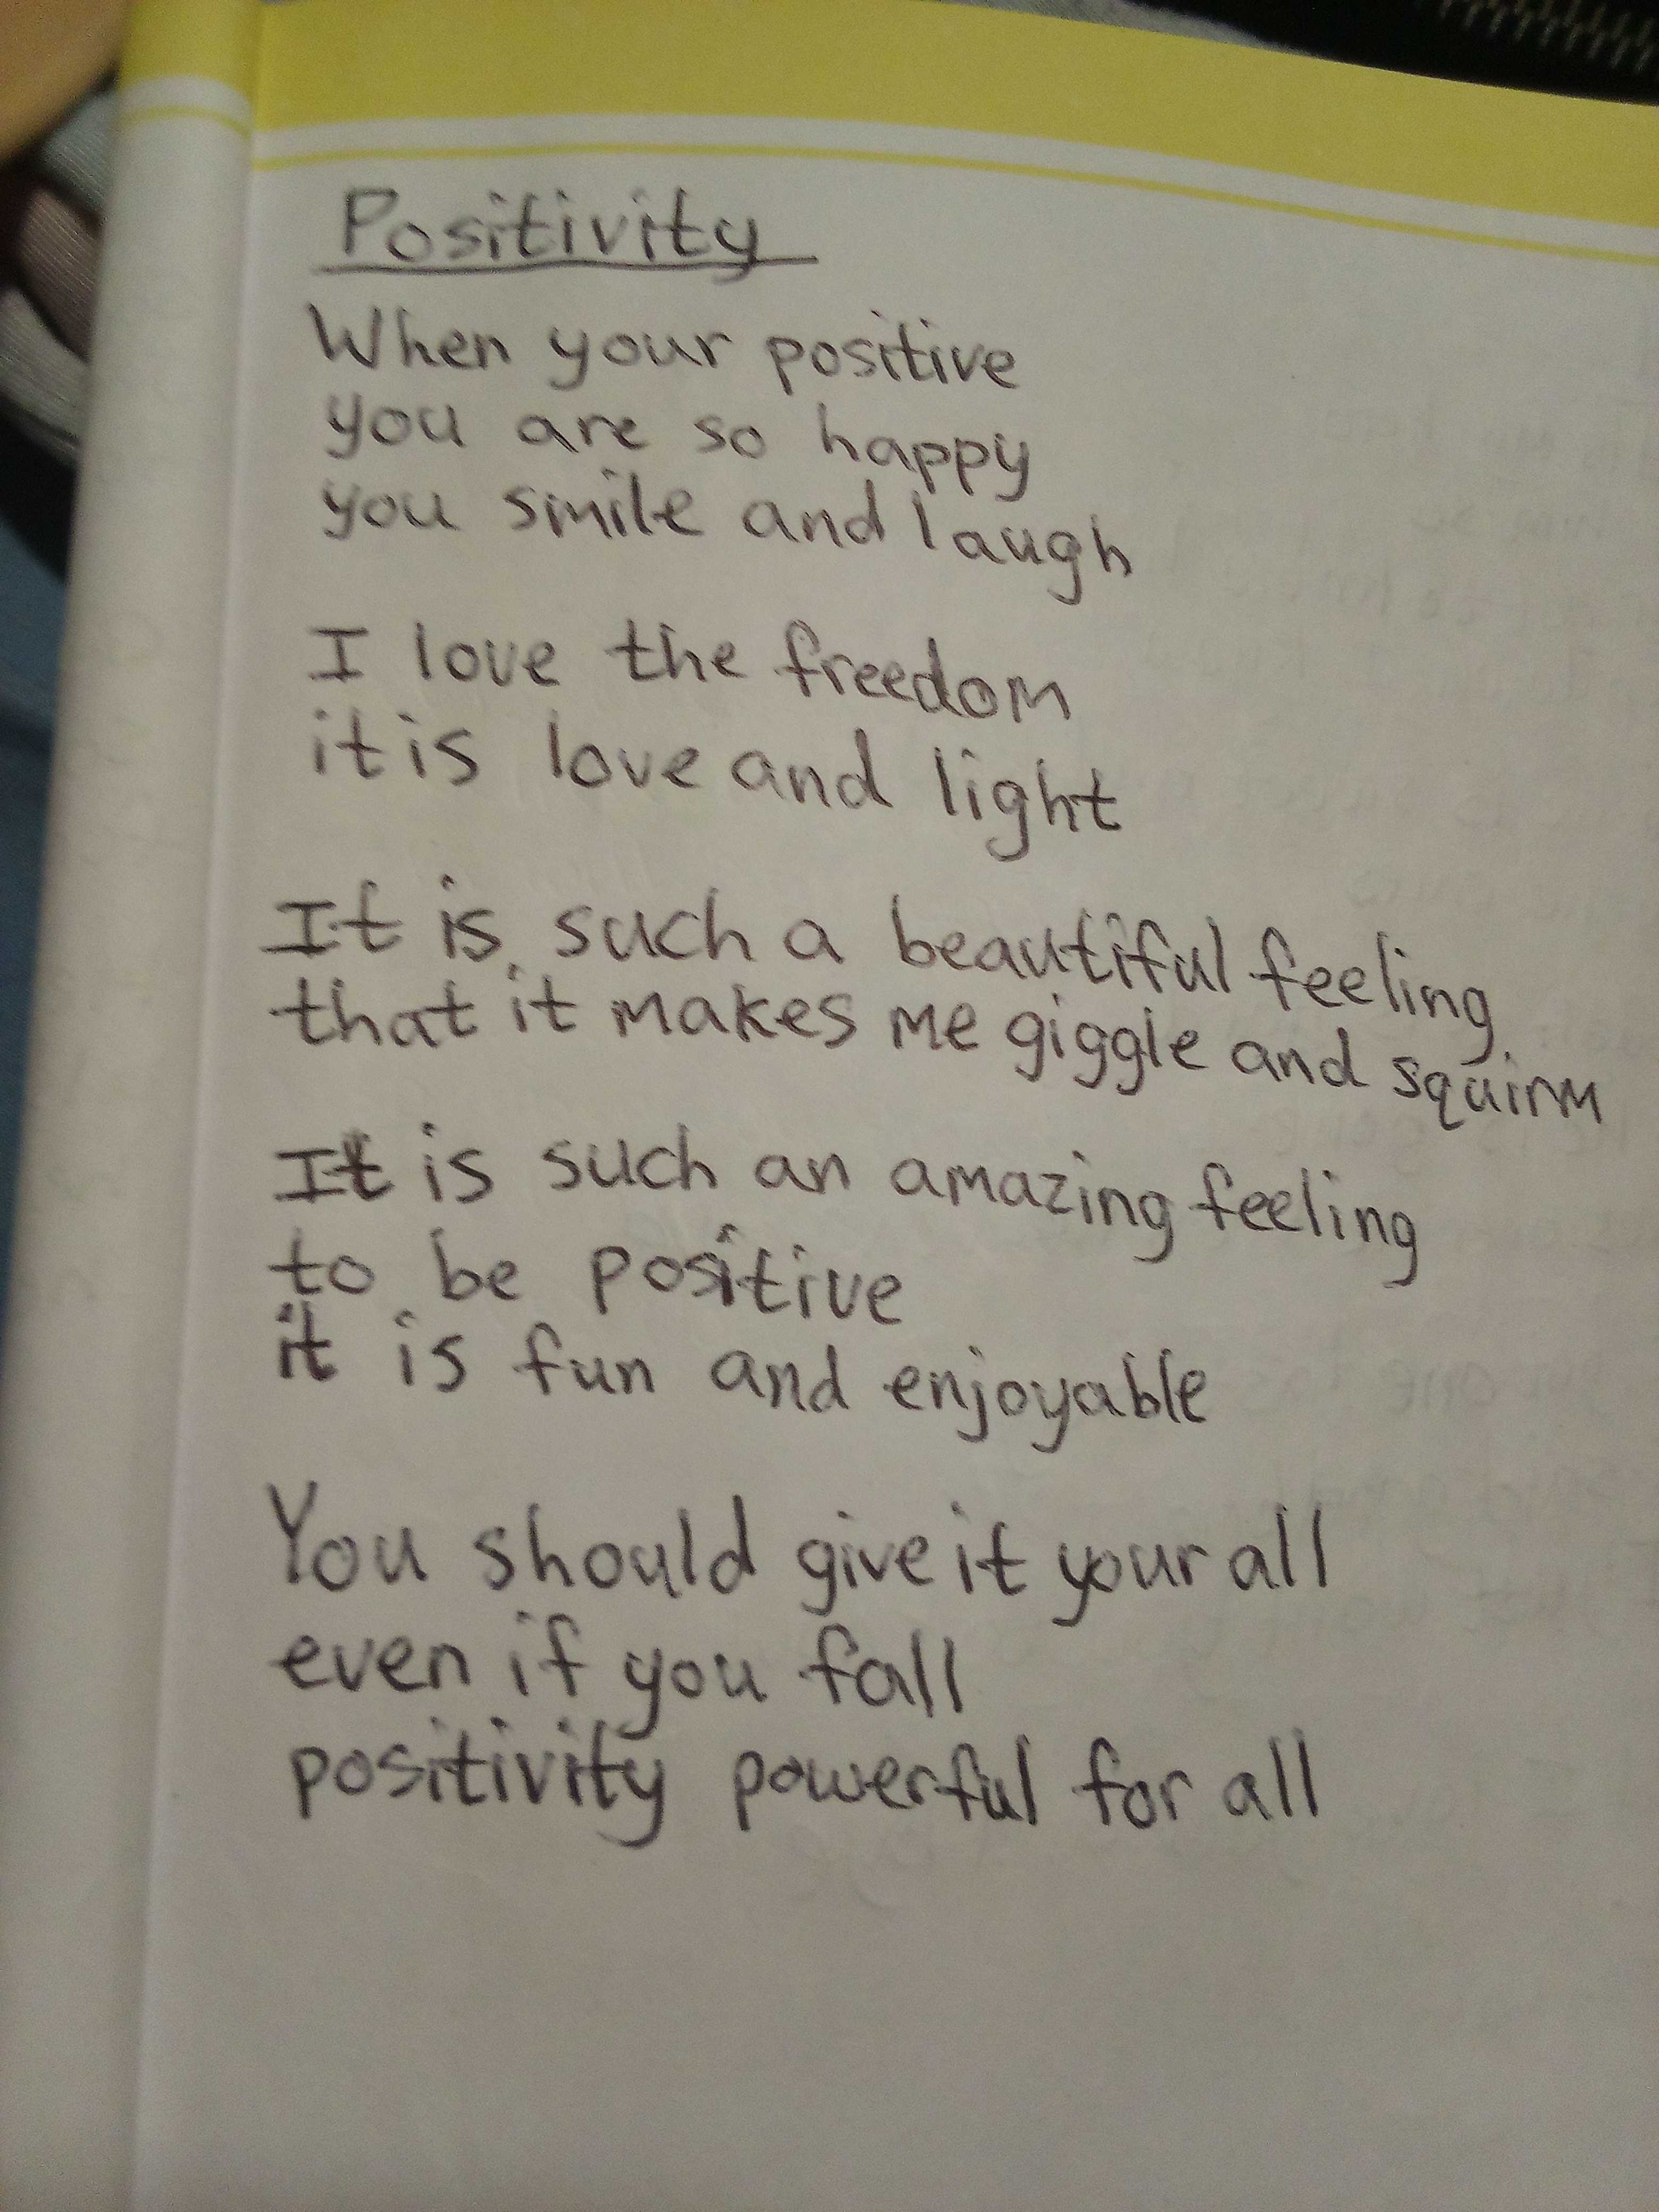 Positivity
When your positive
you are so happy
you smile and laugh
I love the freedom
it is love and light
It is such a beautiful feeling
that it makes me giggle and squirm
It is such an amazing feeling
to be positive
it is fun and enjoyable
You should give it your all
even if you fall
positivity powerful for all